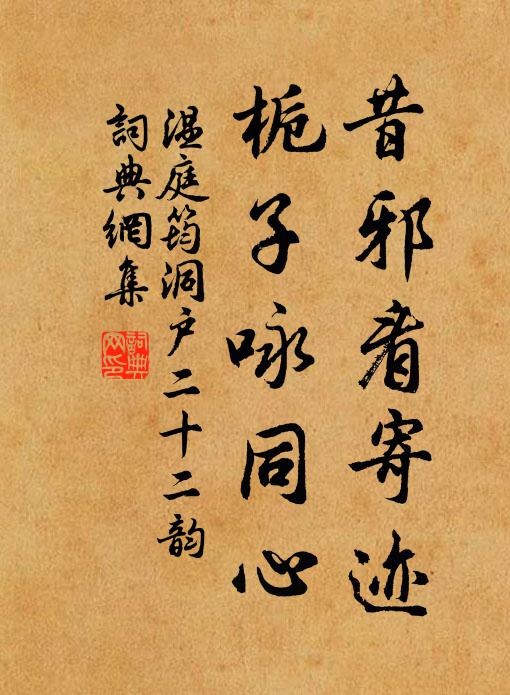 昔邪看寄迹
栀子咏同心
温庭筠洞户二十二韵
詞典網集
詞典網印